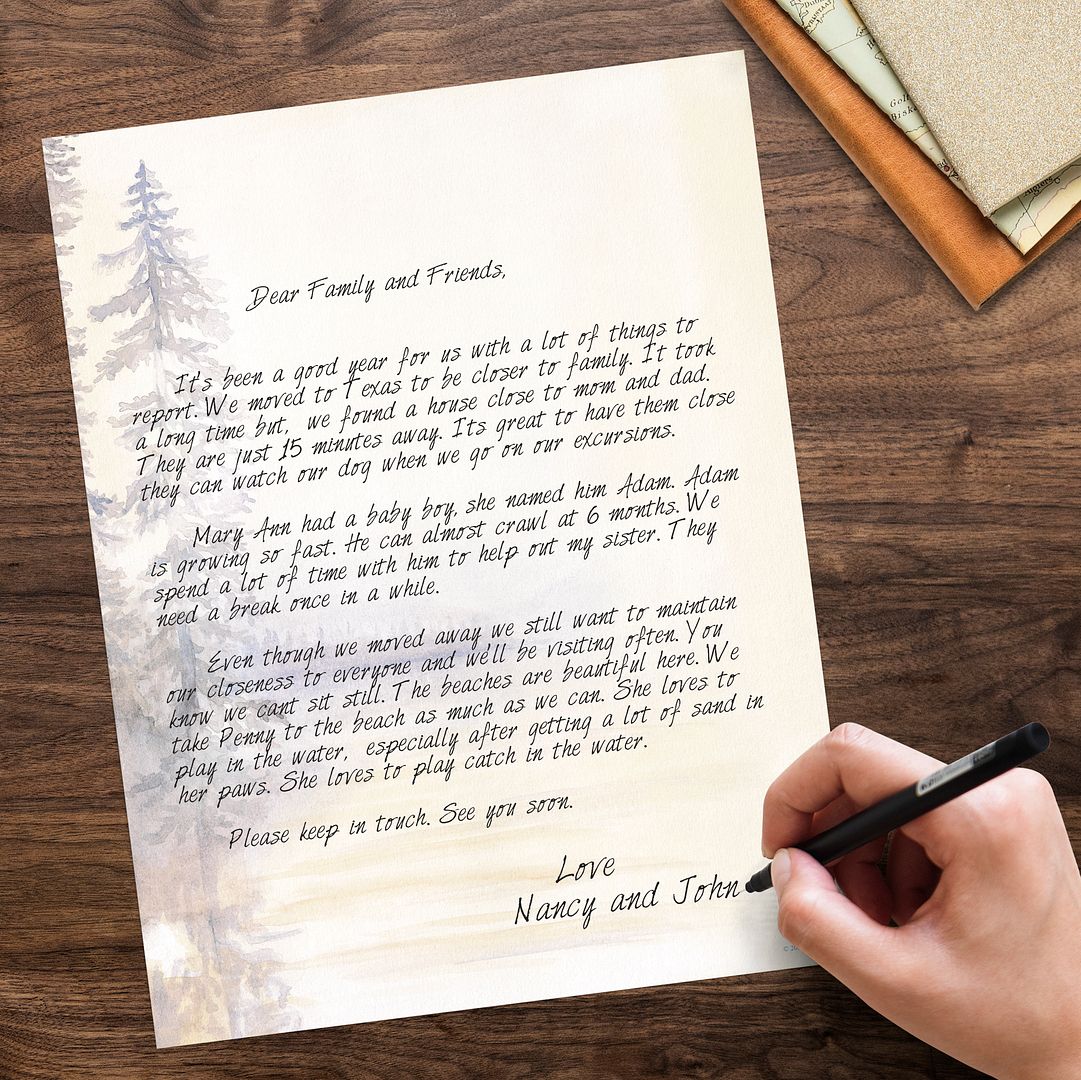 Dear Family and Friends,
It's been a good year for us with a lot of things to
report. We moved to Texas to be closer to family. It took
a long time but, we found a house close to mom and dad.
They are just 15 minutes away. Its great to have them close
they can watch our dog when we go on our excursions.
Mary Ann had a baby boy, she named him Adam. Adam
is growing so fast. He can almost crawl at 6 months. We
spend a lot of time with him to help out my sister. They
need a break once in a while.
Even though we moved away we still want to maintain
our closeness to everyone and we'll be visiting often. You
know we cant sit still. The beaches are beautiful here. We
take Penny to the beach as much as we can. She loves to
play in the water, especially after getting a lot of sand in
her paws. She loves to play catch in the water.
Please keep in touch. See you soon.
Love
Nancy and John